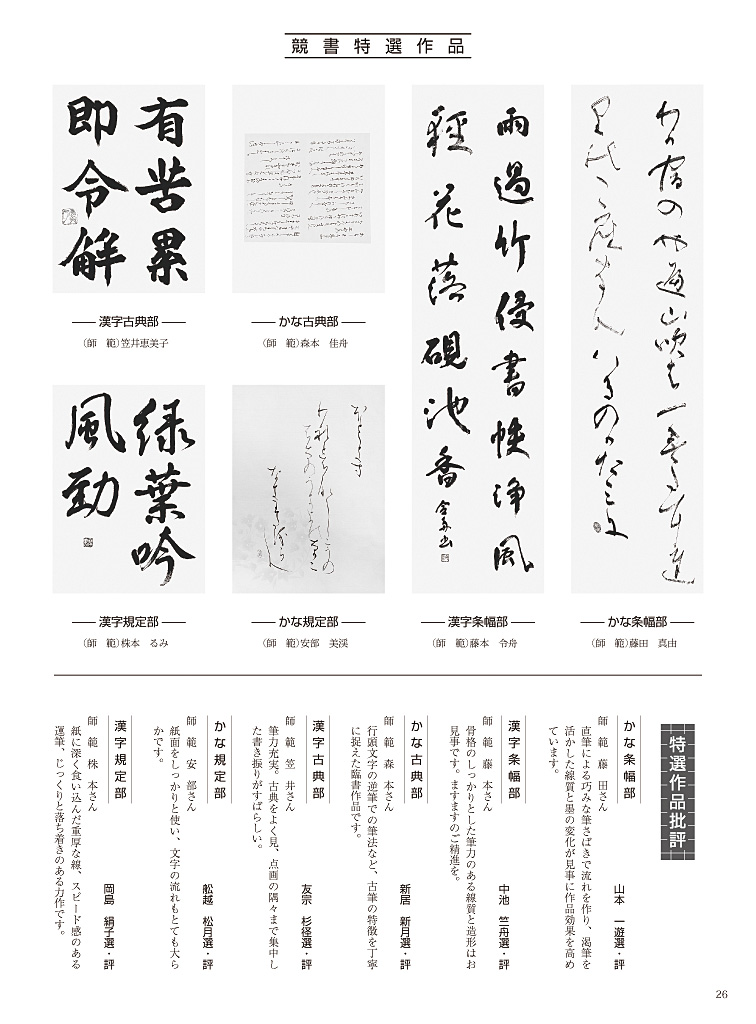 競書特選作品
有苦累
即令解
漢字古典部
（師　範）笠井恵美子
かな古典部
（師　範）森本　佳舟
雨過竹侵書帙浄風
軽花落硯池香
漢字条幅部
（師　範）藤本　令舟
かな条幅部
（師　範）藤田　真由
緑葉吟
風勁
漢字規定部
（師　範）株本　るみ
かな規定部
（師　範）安部　美渓
特選作品批評
かな条幅部
山本　一遊選・評
師　範　藤　田さん
直筆による巧みな筆さばきで流れを作り、渇筆を
活かした線質と墨の変化が見事に作品効果を高め
ています。
漢字条幅部
中池　竺舟選・評
師　範　藤　本さん
骨格のしっかりとした筆力のある線質と造形はお
見事です。ますますのご精進を。
かな古典部
新居　新月選・評
師　範　森　本さん
行頭文字の逆筆での筆法など、古筆の特徴を丁寧
に捉えた臨書作品です。
漢字古典部
友宗　杉径選・評
師　範　笠　井さん
筆力充実。古典をよく見、点画の隅々まで集中し
た書き振りがすばらしい。
かな規定部
舩越　松月選・評
師　範　安　部さん
紙面をしっかりと使い、文字の流れもとても大ら
かです。
漢字規定部
岡島　絹子選・評
師　範　株　本さん
紙に深く食い込んだ重厚な線、スピード感のある
運筆、じっくりと落ち着きのある力作です。
26